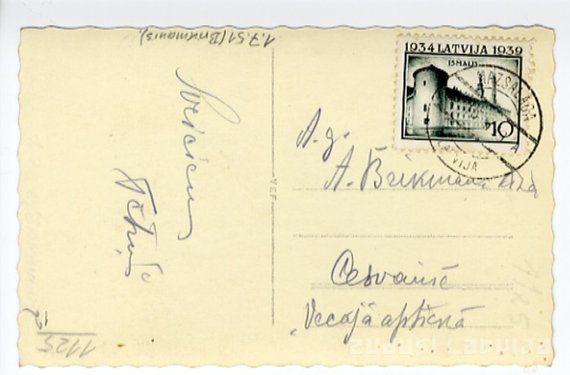 1.7.51 (Brikmanis).
Sveiciens
Pētris
VEF
1934 LATVIJA 1939
10
MAZSALACA
LATVIJA
A. g.
A. Brikmaņa kdze
Cesvainē
Vecajā aptiekā
1125
1125